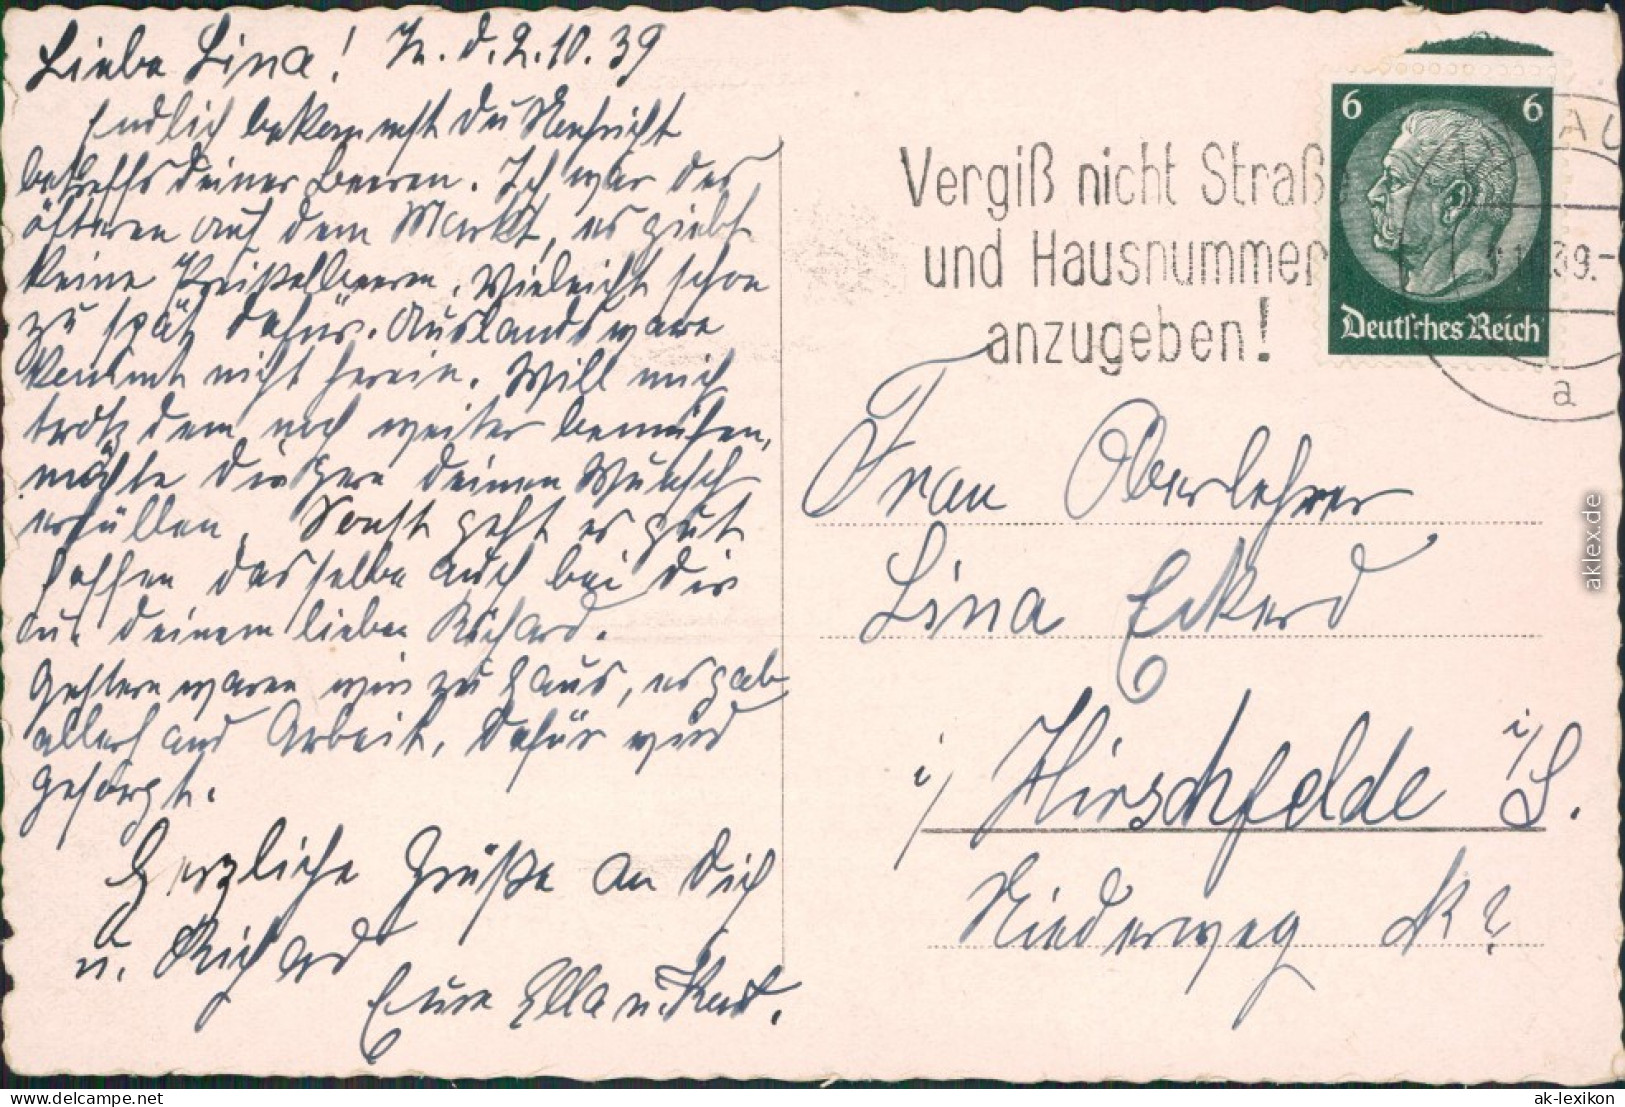 Liebe Lina! Z. d. 2.10.39
Endlich bekommst Du Nachricht
betreffs deiner Beeren. Ich war des
öfteren auf dem Markt, es giebt
keine Preißelbeeren. Vieleicht schon
zu spät dafür. Auslandsware
kommt nicht herein. Will mich
trotzdem noch weiter bemühen,
möchte dir gern deinen Wunsch
erfüllen. Sonst geht es gut
hoffen dasselbe auch bei dir
u. deinem lieben Richard.
Gestern waren wir zu Haus, es gab
allerhand Arbeit. Dafür wird
gesorgt.
Herzliche Grüße an Dich
u. Richard
Eure Ella u. Kurt.
Vergiß nicht Straß
und Hausnummer
anzugeben!
6 6
Deutsches Reich
AU
39.-
a
Frau Oberlehrer
Lina Eckerd
i/ Hirschfelde i/S.
Niederweg N?
aklex.de
www.delcampe.net
ak-lexikon